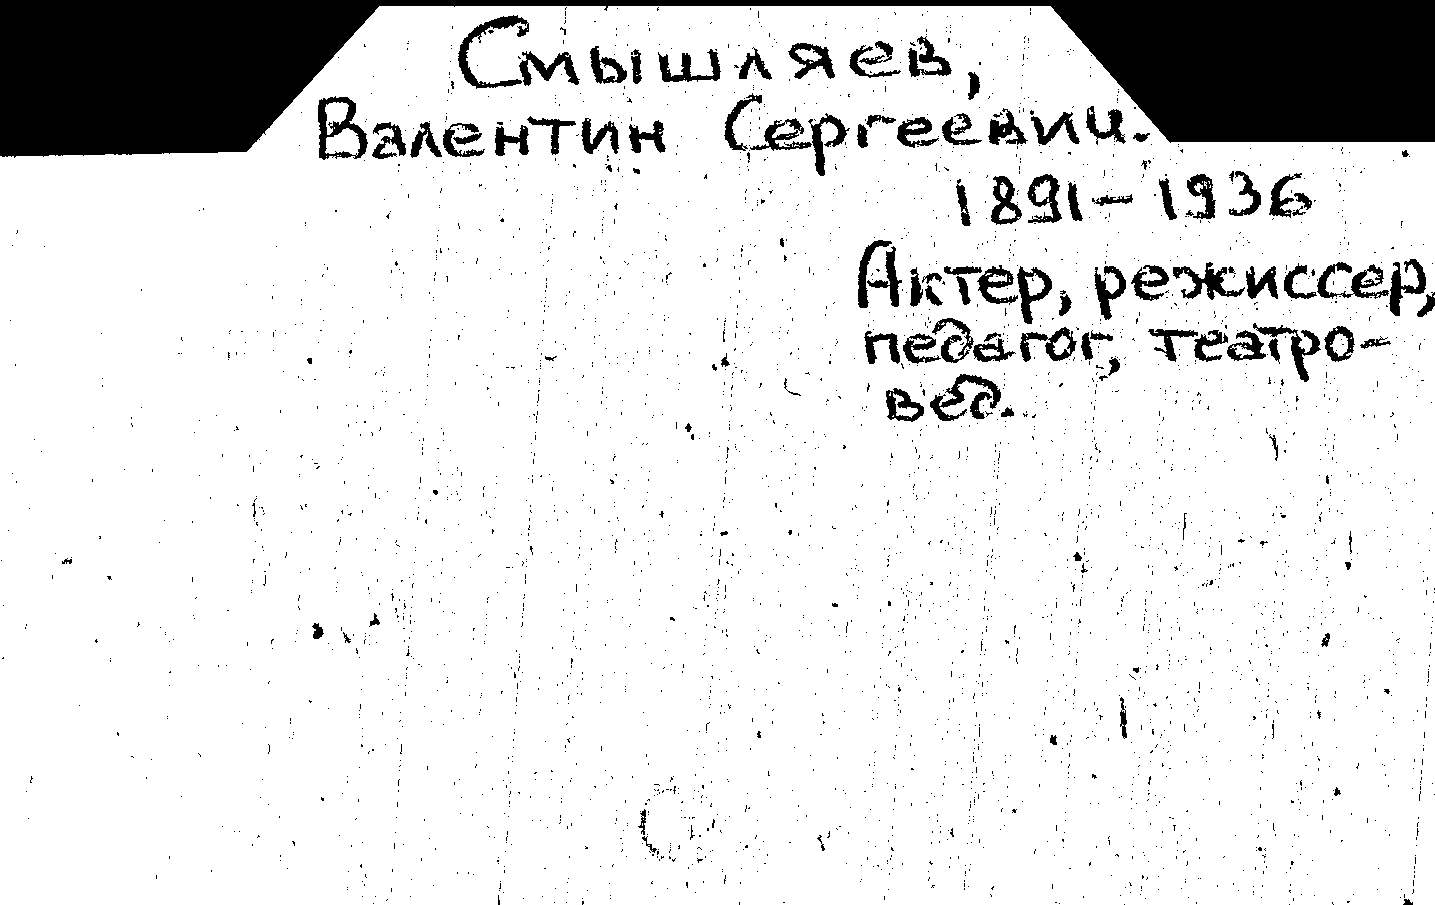 Смышляев,
Валентин Сергеевич.
1891-1936
Актер, режиссер,
педагог, театро-
вед.